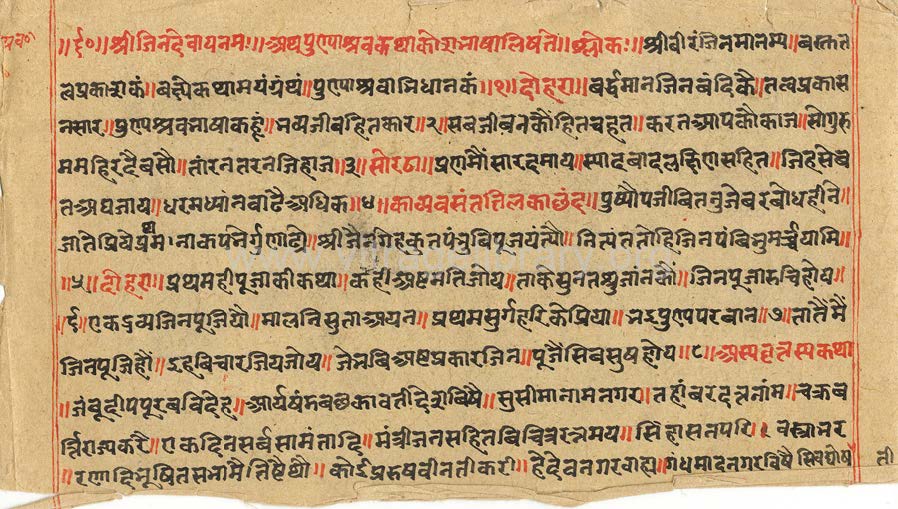 ॥६०॥ श्रीजिनदेवायनमः॥ अथपुण्याश्रवकथाकोशभाषालिष्यते॥ श्लोकः॥ श्रीवीरंजिनमानम्य॥ वस्तुत
त्वप्रकाशकं॥ वक्ष्येकथामयंग्रंथं॥ पुण्याश्रवाभिधानकं॥१॥ दोहरा॥ वर्द्धमानजिनबंदिकै॥ तत्वप्रकास
नसार॥ पुण्यश्रवभाषाकहूं॥ भव्यजीवहितकार॥२॥ सबजीवनकौंहितचहत॥ करतआपकौकाज॥ सोगुरु
मममहिरदैबसौ॥ तारनतरनजिहाज॥३॥ सोरठा॥ प्रणमौंसारदमाय॥ स्यादवादलक्षिणसहित॥ जिहसेव
तअघजाय॥ धरमध्यांनबाढैअधिक॥४॥ काव्यवसंततिलकाछंद॥ पुष्पोपजीवितनुजेवरबोधहीने॥
जातेप्रियेप्रथमनाकपतेर्गुणाढ्ये॥ श्रीजैनगेहकुतपंभुविपूजयंत्यौ॥ नित्यंततोहिजिनपंविभुमर्च्चयामि॥
॥५॥ दोहरा॥ प्रथमहीपूजाकीकथा॥ कहौंअष्टमतिजोय॥ ताकेसुनतथुजांनकौं॥ जिनपूजारुचिहोय॥
॥६॥ एकद्रव्यजिनपूजियौ॥ मालनिसुताअयन॥ प्रथमसुर्गहरिकेप्रिया॥ भईपुण्यपरवान॥७॥ तातैंमैं
जिनपूजिहौं॥ इहविचारजियजोय॥ जेभविअष्टप्रकारजिन॥ पूजैंसिवसुषहोय॥८॥ अस्यवृतस्यकथा
॥ जंबूदीपपूरबविदेह॥ आर्यषंडवछकावतीदेशविषैं॥ सुसीमानामनगर॥ तहांवरदत्तनांम॥ चक्रव
र्त्तिराज्यकरै॥ एकदिनसर्वसामंतादि॥ मंत्रीजनसहितविचित्ररत्नमय॥ सिंहासनपरि॥ वस्त्राभर
॥रणादिभूषितसभामैंतिष्टैथौ॥ कोईपुरुषवीनतीकरी॥ हेदेवनगरवाह्य॥ गंधमादनगरविषैसिवघोष ती
www.vitragvani.com